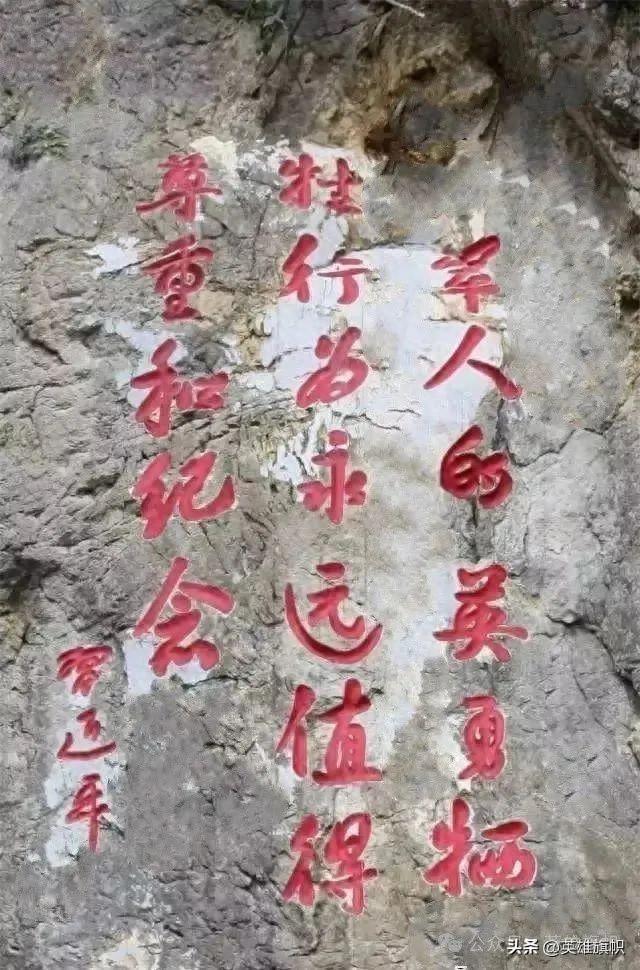 军人的英勇牺
牲行为永远值得
尊重和纪念
习近平
头条 @英雄旗帜